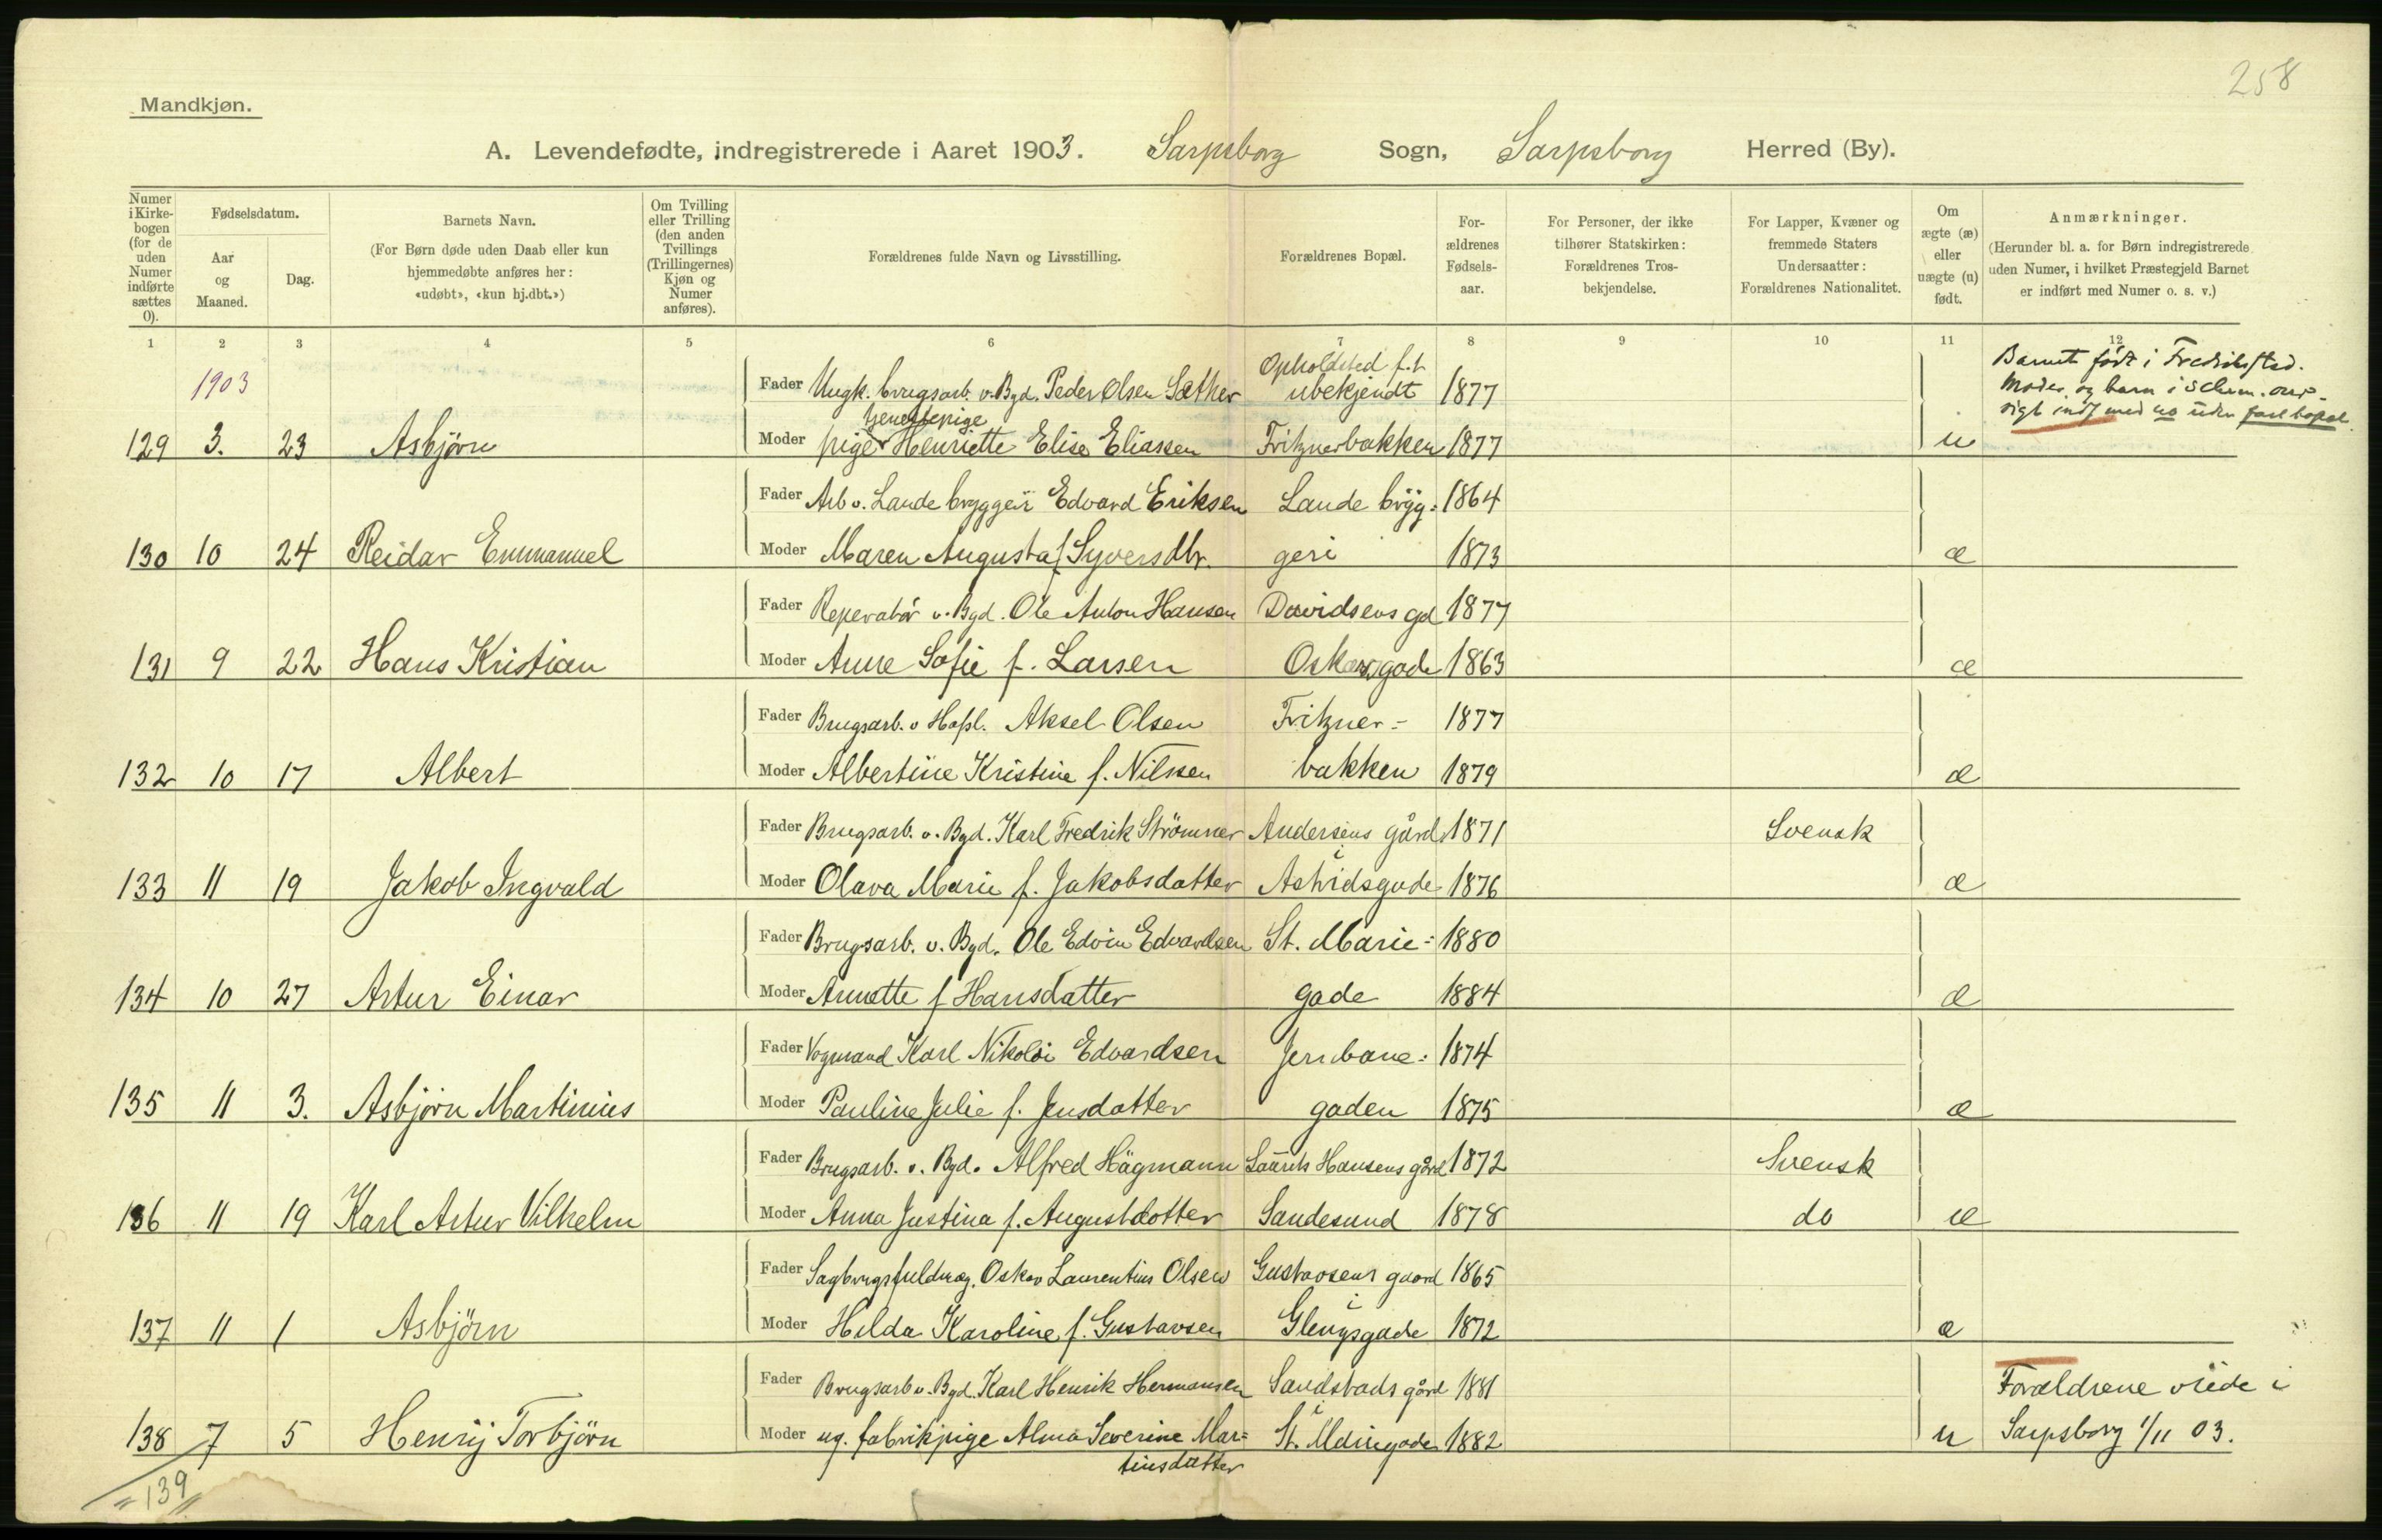 258
Mandkjøn.
A. Levendefødte, indregistrerede i Aaret 1903. Sarpsborg Sogn, Sarpsborg Herred (By).
Numer i Kirke- bogen (for de uden Numer indførte sættes 0).
Fødselsdatum.
Aar og Maaned.
Dag.
Barnets Navn.
(For Børn døde uden Daab eller kun hjemmedøbte anføres her: «udøbt», «kun hj.dbt.»)
Om Tvilling eller Trilling (den anden Tvillings (Trillingernes) Kjøn og Numer anføres).
Forældrenes fulde Navn og Livsstilling.
Forældrenes Bopæl.
For- ældrenes Fødsels- aar.
For Personer, der ikke tilhører Statskirken: Forældrenes Tros- bekjendelse.
For Lapper, Kvæner og fremmede Staters Undersaatter: Forældrenes Nationalitet.
Om ægte (æ) eller uægte (u) født.
Anmærkninger.
(Herunder bl. a. for Børn indregistrerede uden Numer, i hvilket Præstegjeld Barnet er indført med Numer o. s. v.)
1 2 3 4 5 6 7 8 9 10 11 12
1903
Fader Ungk. brugsarb. v. Bgd. Peder Olsen Sæther Opholdsted f.t. ubekjendt 1877
Barnet født i Fredrikstad.
Moder og barn i schem. over-
sigt indf med no uden fast bopæl.
tjenestepige
129 3. 23 Asbjörn Moder pige Henriette Elise Eliassen Fritznerbakken 1877 u
Fader Arb v. Lande bryggeri Edvard Eriksen Lande bryg- 1864
130 10 24 Reidar Emmanuel Moder Maren Augusta f. Syversdtr. geri 1873 æ
Fader Reperatör v. Bgd. Ole Anton Hansen Davidsens gd 1877
131 9 22 Hans Kristian Moder Anne Sofie f. Larsen Oskarsgade 1863 æ
Fader Brugsarb. v Hafsl. Aksel Olsen Fritzner- 1877
132 10 17 Albert Moder Albertine Kristine f. Nilssen bakken 1879 æ
Fader Brugsarb. v. Bgd. Karl Fredrik Strömner Andersens gård 1871 Svensk
133 11 19 Jakob Ingvald Moder Olava Marie f. Jakobsdatter i Astridsgade 1876 æ
Fader Brugsarb. v. Bgd. Ole Edvin Edvardsen St. Marie- 1880
134 10 27 Artur Einar Moder Annette f Hansdatter gade 1884 æ
Fader Vogmand Karl Nikolai Edvardsen Jernbane- 1874
135 11 3. Asbjörn Martinius Moder Pauline Julie f. Jensdatter gaden 1875 æ
Fader Brugsarb. v. Bgd. Alfred Hägmann Laurits Hansens gård 1872 Svensk
136 11 19 Karl Artur Vilhelm Moder Anna Justina f. Augustdotter Sandesund 1878 do æ
Fader Sagbrugsfuldmæg. Oskar Laurentius Olsen Gustavsens gaard 1865
137 11 1 Asbjörn Moder Hilda Karoline f. Gustavsen i Glengsgade 1872 æ
Fader Brugsarb v. Bgd. Karl Henrik Hermansen Sandstads gård 1881 Forældrene viede i
138 7 5 Henrij Torbjörn Moder ug. fabrikpige Alma Severine Mar- i St. Mariegade 1882 u Sarpsborg 1/11 03.
tinsdatter
139